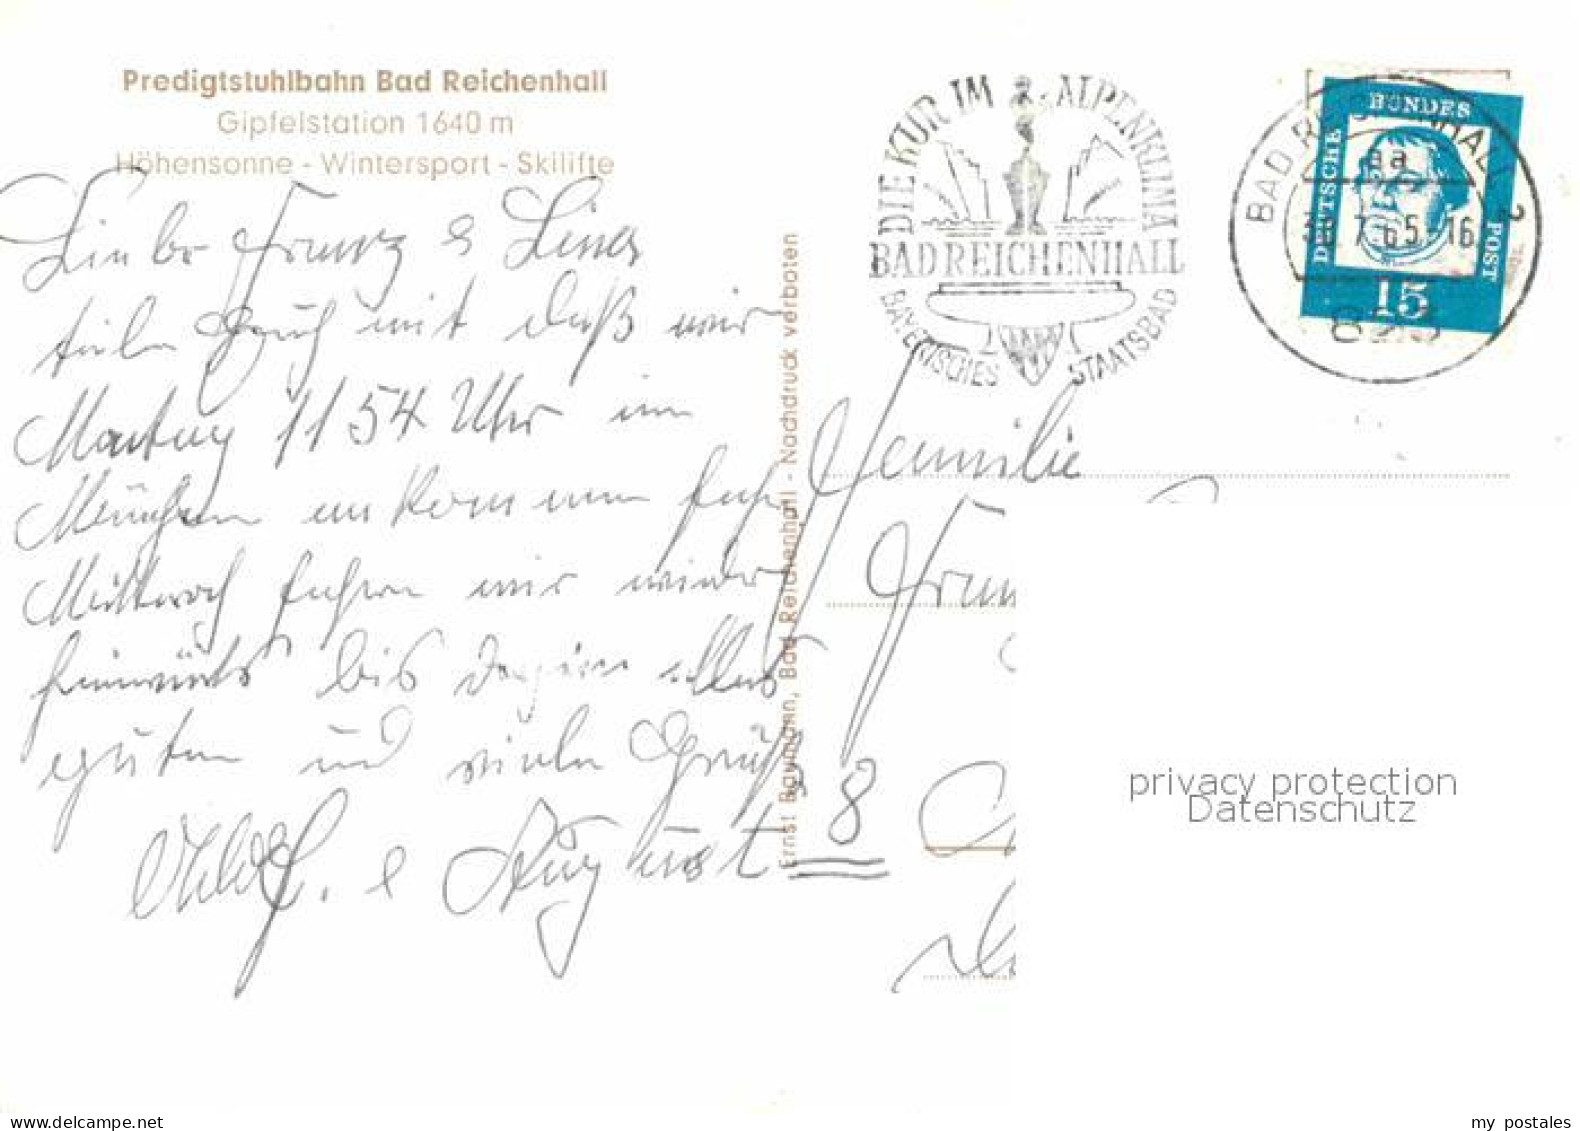 Predigtstuhlbahn Bad Reichenhall
Gipfelstation 1640 m
Höhensonne - Wintersport - Skilifte
Liebe Franz & Lina
teile Euch mit daß wir
Montag 11 54 Uhr in
München ankommen
Mittwoch fahren wir wieder
heimwärts bis dahin alles
guten und viele Grüße
& August
8
Ernst Baumann, Bad Reichenhall - Nachdruck verboten
DIE KUR IM ALPENKLIMA
BAD REICHENHALL
BAYERISCHES STAATSBAD
BAD REICHENHALL 2
aa
7 65 16
DEUTSCHE
BUNDES
POST
15
Familie
privacy protection
Datenschutz
https://www.ansichtskarten-center.de/
my postales